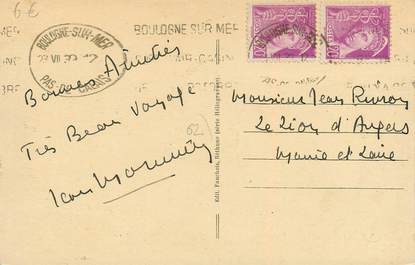 6€
BOULOGNE-SUR-MER
PAS-DE-CALAIS
BOULOGNE SUR MER
Bonnes Amitiés
Très Beau Voyage
Jean
62
Edit. Fauchois, Béthune (série Héliogravure)
Monsieur Jean
Le Lion d'Angers
Maine et Loire